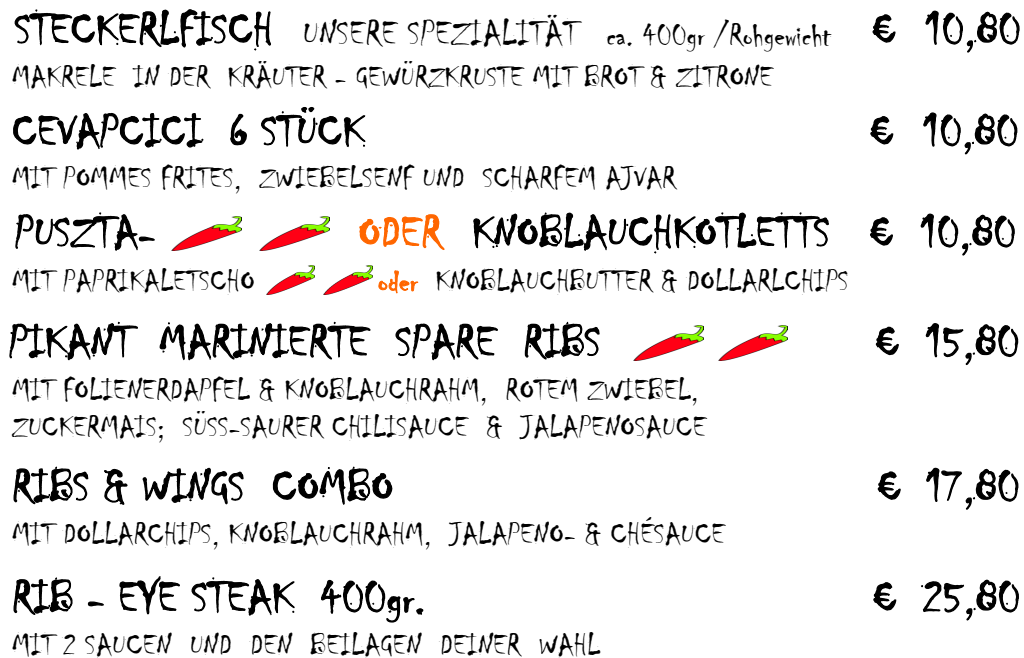 STECKERLFISCH UNSERE SPEZIALITÄT ca. 400gr /Rohgewicht € 10,80
MAKRELE IN DER KRÄUTER - GEWÜRZKRUSTE MIT BROT & ZITRONE
CEVAPCICI 6 STÜCK € 10,80
MIT POMMES FRITES, ZWIEBELSENF UND SCHARFEM AJVAR
PUSZTA- ODER KNOBLAUCHKOTLETTS € 10,80
MIT PAPRIKALETSCHO oder KNOBLAUCHBUTTER & DOLLARLCHIPS
PIKANT MARINIERTE SPARE RIBS € 15,80
MIT FOLIENERDAPFEL & KNOBLAUCHRAHM, ROTEM ZWIEBEL,
ZUCKERMAIS; SÜSS-SAURER CHILISAUCE & JALAPENOSAUCE
RIBS & WINGS COMBO € 17,80
MIT DOLLARCHIPS, KNOBLAUCHRAHM, JALAPENO- & CHÉSAUCE
RIB - EYE STEAK 400gr. € 25,80
MIT 2 SAUCEN UND DEN BEILAGEN DEINER WAHL